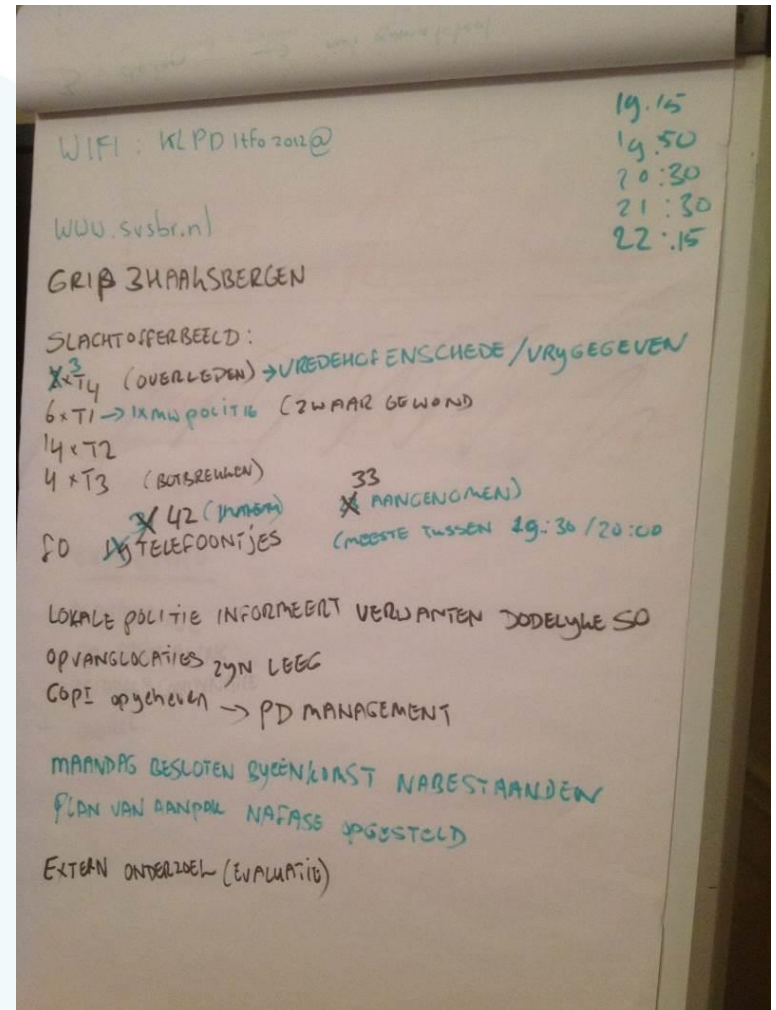 19.15
WIFI : KLPD Itfo2012@
19.50
20:30
21:30
www.svsbr.nl
22:15
GRIP 3 HAAKSBERGEN
SLACHTOFFERBEELD:
3 xT4 (OVERLEDEN) → VREDEHOF ENSCHEDE / VRYGEGEVEN
6xT1 → 1x MW POLITIE (ZWAAR GEWOND
14xT2
4xT3 (BOTBREUKEN)
42 33 AANGENOMEN)
TELEFOONTJES (MEESTE TUSSEN 19:30/20:00
LOKALE POLITIE INFORMEERT VERWANTEN DODELYKE SO
OPVANGLOCATIES ZYN LEEG
COPI opgeheven → PD MANAGEMENT
MAANDAG BESLOTEN BYEENKOMST NABESTAANDEN
PLAN VAN AANPAK NAFASE OPGESTELD
EXTERN ONDERZOEK (EVALUATIE)